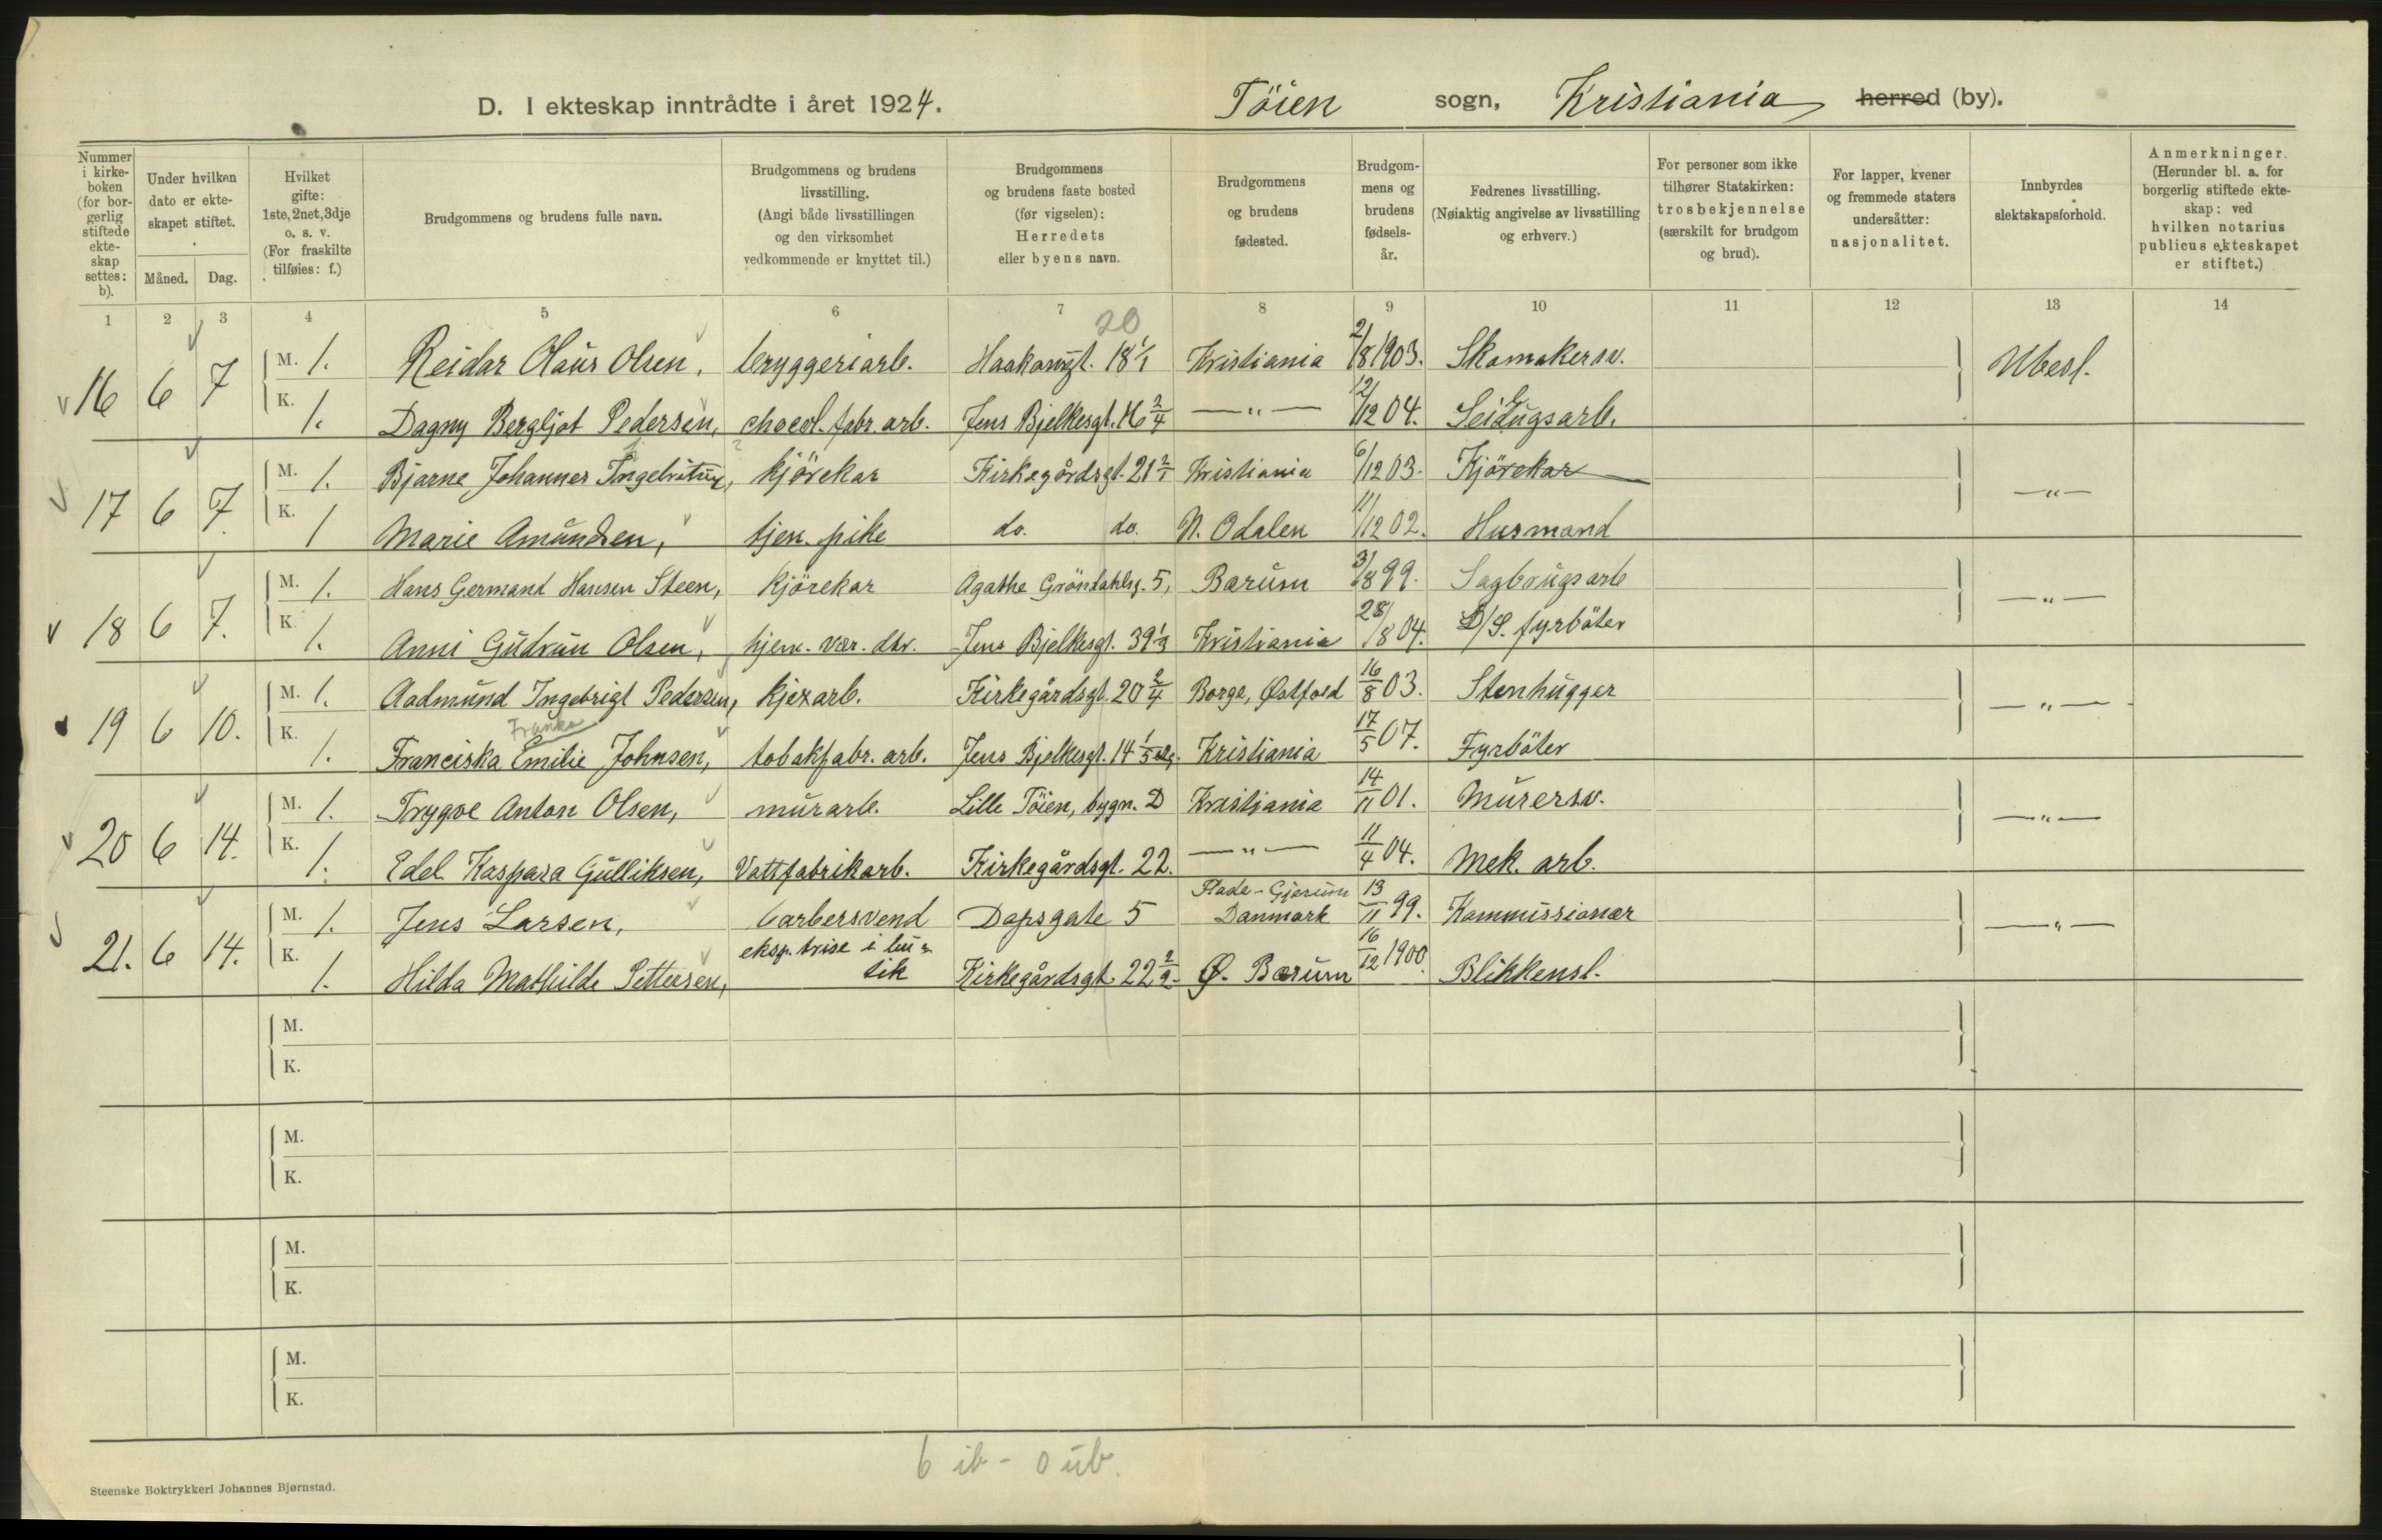 D. I ekteskap inntrådte i året 1924. Töien sogn, Kristiania herred (by).
Nummer i kirkeboken (for borgerlig stiftede ekteskap settes: b).
Under hvilken dato er ekteskapet stiftet.
Måned. Dag.
Hvilket gifte: 1ste, 2net, 3dje o. s. v. (For fraskilte tilføies: f.)
Brudgommens og brudens fulle navn.
Brudgommens og brudens livsstilling. (Angi både livsstillingen og den virksomhet vedkommende er knyttet til.)
Brudgommens og brudens faste bosted (før vigselen): Herredets eller byens navn.
Brudgommens og brudens fødested.
Brudgommens og brudens fødselsår.
Fedrenes livsstilling. (Nøiaktig angivelse av livsstilling og erhverv.)
For personer som ikke tilhører Statskirken: trosbekjennelse (særskilt for brudgom og brud).
For lapper, kvener og fremmede staters undersåtter: nasjonalitet.
Innbyrdes slektskapsforhold.
Anmerkninger. (Herunder bl. a. for borgerlig stiftede ekteskap: ved hvilken notarius publicus ekteskapet er stiftet.)
1 2 3 4 5 6 7 8 9 10 11 12 13 14
20
16 6 7 M. 1. Reidar Olaus Olsen, bryggeriarb. Haakonsgt. 18 1/1 Kristiania 2/8 1903. Skomakersv. Ubesl.
K. 1. Dagny Bergljot Pedersen, chocol. fabr. arb. Jens Bjelkesgt. 16 2/4 —"— 12/12 04. Seildugsarb.
17 6 7. M. 1. Bjarne Johannes Ingebritsen, kjörekar Kirkegårdsgt. 21 2/1 Kristiania 6/12 03. Kjörekar —"—
K. 1 Marie Amundsen, tjen. pike do. do. N. Odalen 11/12 02. Husmand
18 6 7. M. 1. Hans Germand Hansen Steen, kjörekar Agathe Gröndahlsg. 5, Bærum 3/8 99. Sagbrugsarb —"—
K. 1. Anni Gudrun Olsen, hjem. vær. dtr. Jens Bjelkesgt. 39 1/3 Kristiania 28/8 04. D/S. fyrböter
19 6 10. M. 1. Aadmund Ingebrigt Pedersen, kjexarb. Kirkegårdsgt. 20 2/4 Borge, Østfold 16/8 03. Stenhugger —"—
Franka
K. 1. Franciska Emilie Johnsen, tobakfabr. arb. Jens Bjelkesgt. 14 1/5 Kristiania 17/5 07. Fyrböter
20 6 14. M. 1. Trygve Anton Olsen, murarb. Lille Töien, bygn. D Kristiania 14/11 01. Murersv. —"—
K. 1. Edel Kaspara Gulliksen, Vattfabrikarb. Kirkegårdsgt. 22. —"— 11/4 04. Mek. arb.
21. 6 14. M. 1. Jens Larsen, barbersvend Dopsgate 5 Flade-Gjerum Danmark 13/11 99. Kommissionær —"—
K. 1. Hilda Mathilde Pettersen, eksp. trise i butik Kirkegårdsgt. 22 2/2. Ø. Bærum 16/12 1900. Blikkensl.
M.
K.
M.
K.
M.
K.
M.
K.
6 ib - 0 ub.
Steenske Boktrykkeri Johannes Bjørnstad.